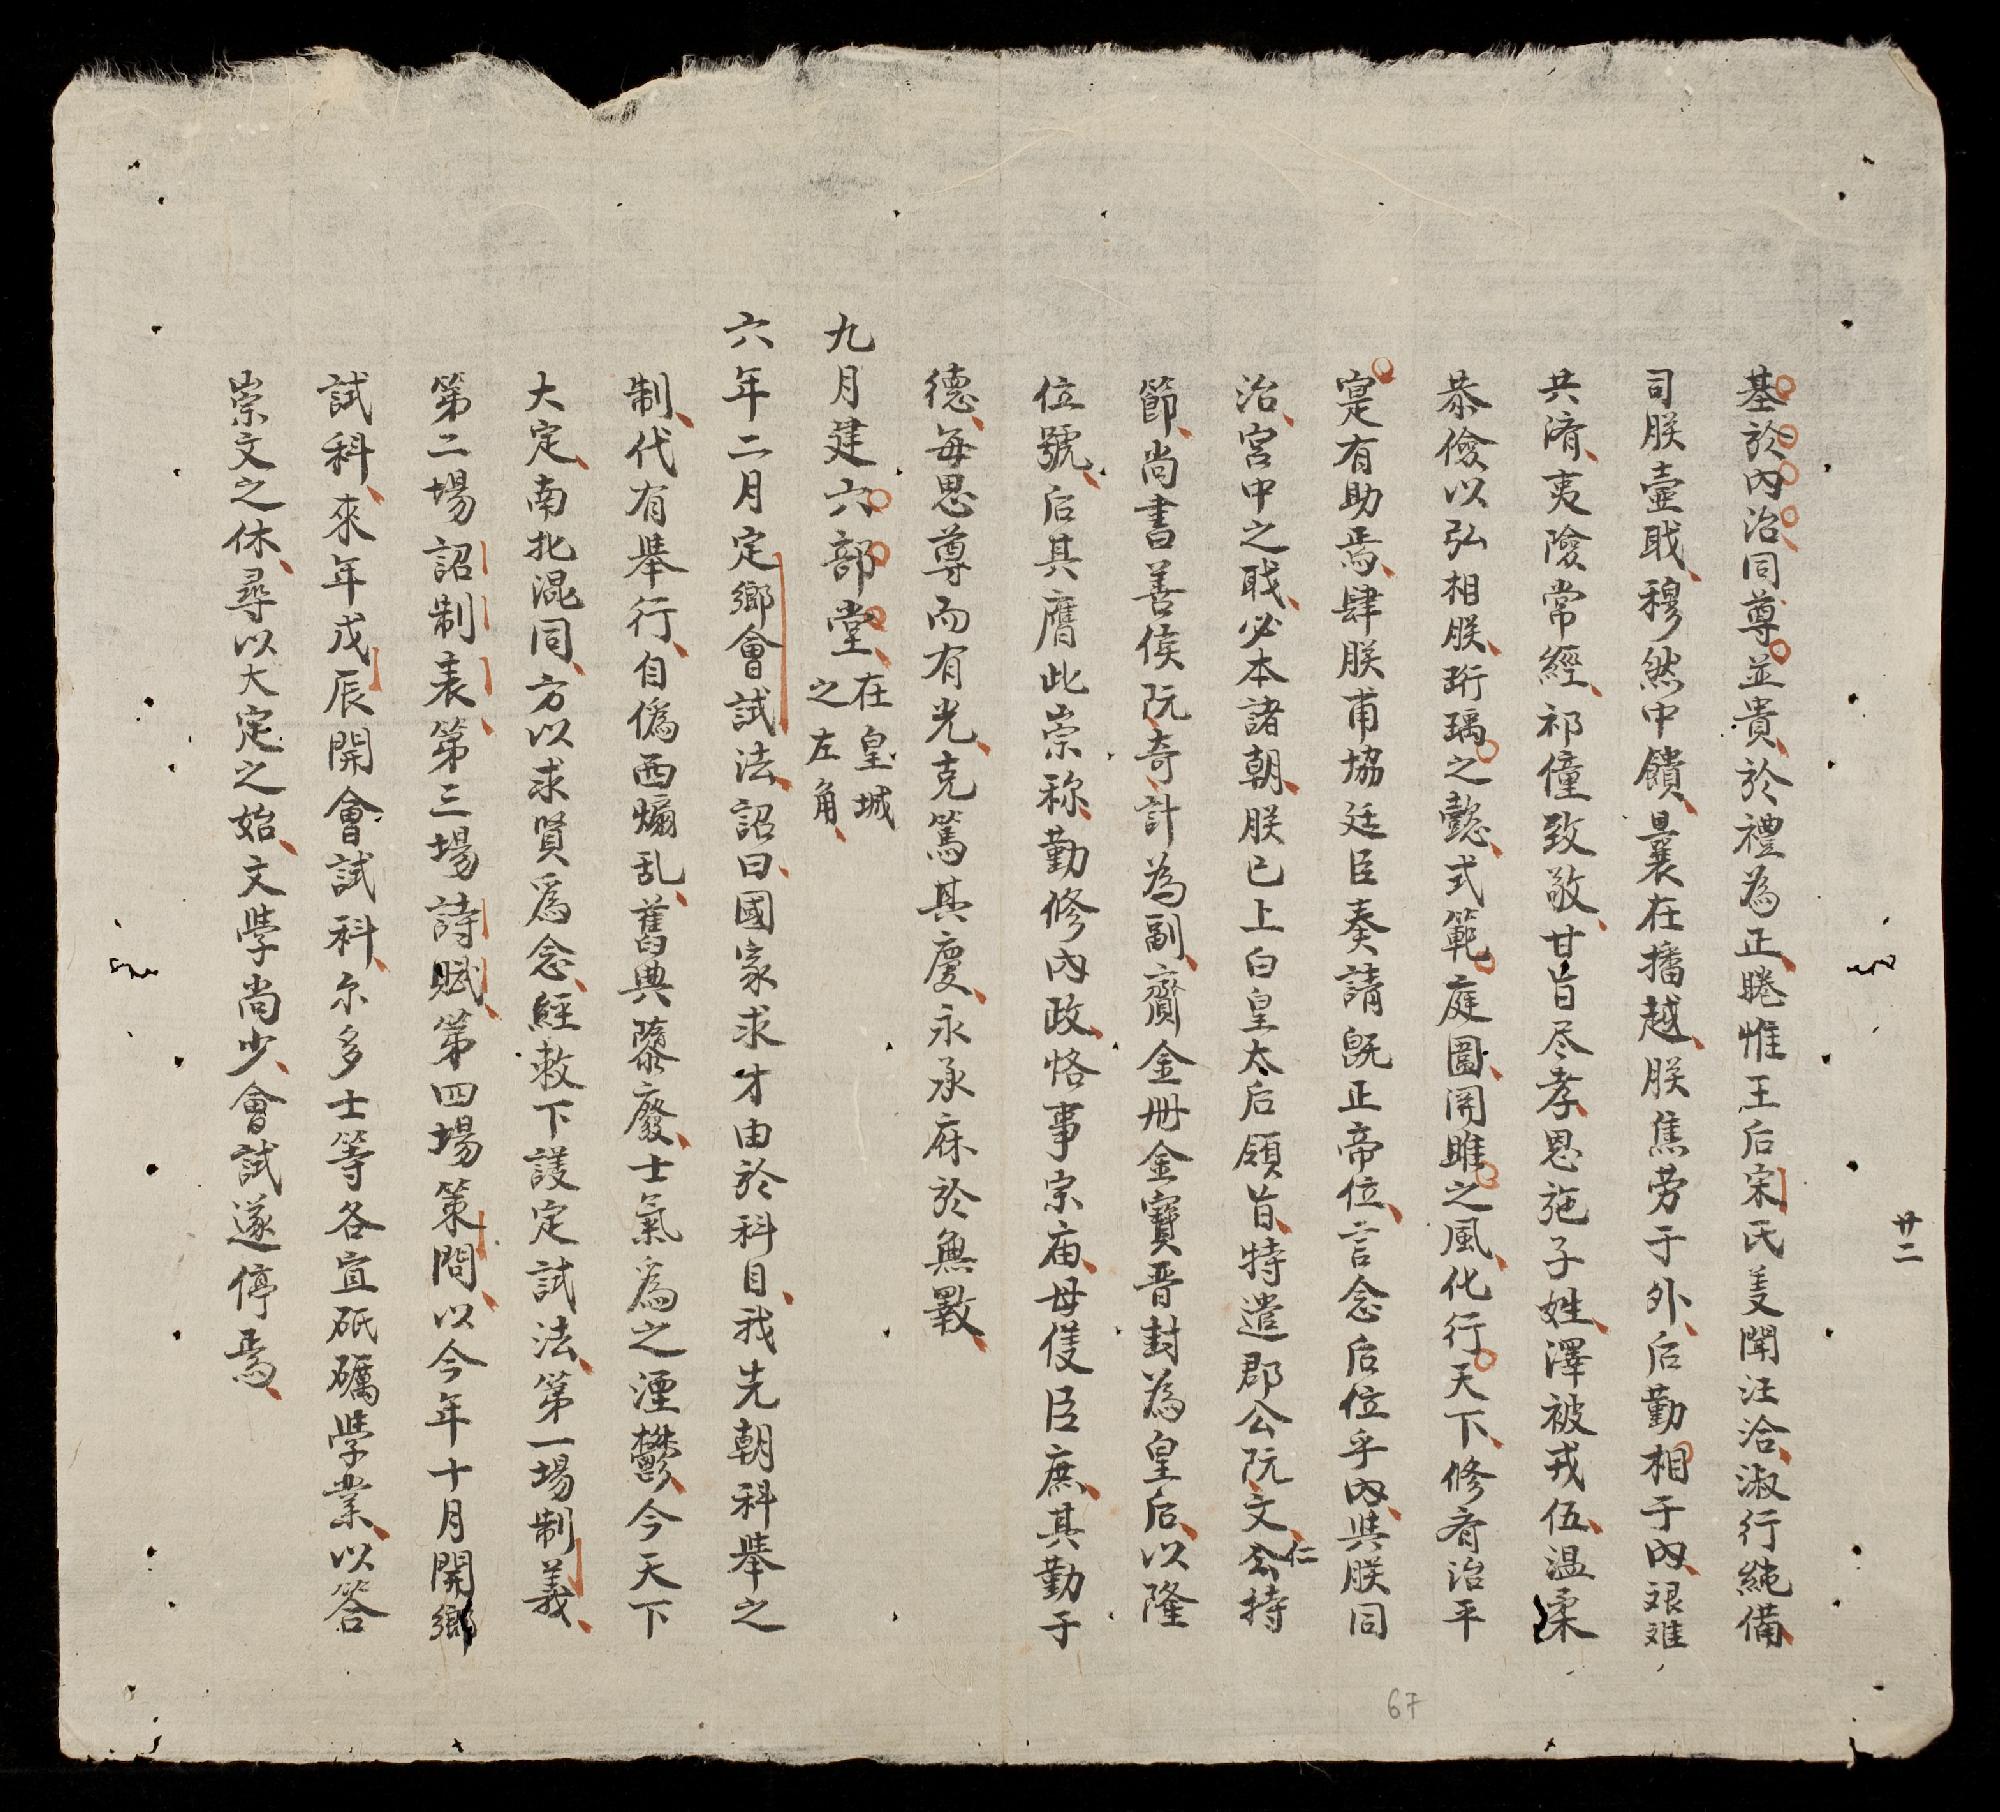 基於內治同尊並貴於禮為正睠惟王后宋氏㺯聞汪洽淑行純備
司朕壼職穆然中饋曩在播越朕焦劳于外后勤相于內艰难
共濟夷險常經祁僮致敬甘旨尽孝恩施子姓澤被戎伍温柔
恭儉以弘相朕珩瑀之懿式範庭闈関雎之風化行天下修齊治平
寔有助焉肆朕甫協廷臣奏請既正帝位言念后位乎內與朕同
治宮中之職必本諸朝朕已上白皇太后領旨特遣郡公阮文仁持
節尚書善侯阮奇計為副齎金冊金寶晋封為皇后以隆
位號后其膺此崇称勤修內政恪事宗庙母㑛臣庶其勤于
德每思尊而有光克篤其慶永承庥於無斁
九月建六部堂在皇城
之左角
六年二月定鄉會試法詔曰國家求才由於科目我先朝科舉之
制代有舉行自偽西煽乱舊典隳廢士氣為之湮鬱今天下
大定南北混同方以求賢為念經敕下議定試法第一場制義
第二場詔制表第三場詩賦第四場策問以今年十月開鄉
試科來年戊辰開會試科尔多士等各宜砥礪學業以答
崇文之休尋以大定之始文學尚少會試遂停焉
廿二
67